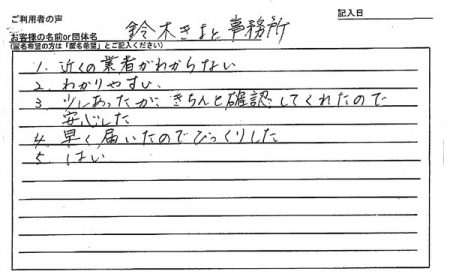 ご利用者の声
記入日
お客様の名前or団体名 鈴木きよと事務所
(匿名希望の方は「匿名希望」とご記入ください)
1. 近くの業者がわからない
2. わかりやすい
3 少しあったがきちんと確認してくれたので
安心した
4. 早く届いたのでびっくりした
5. はい